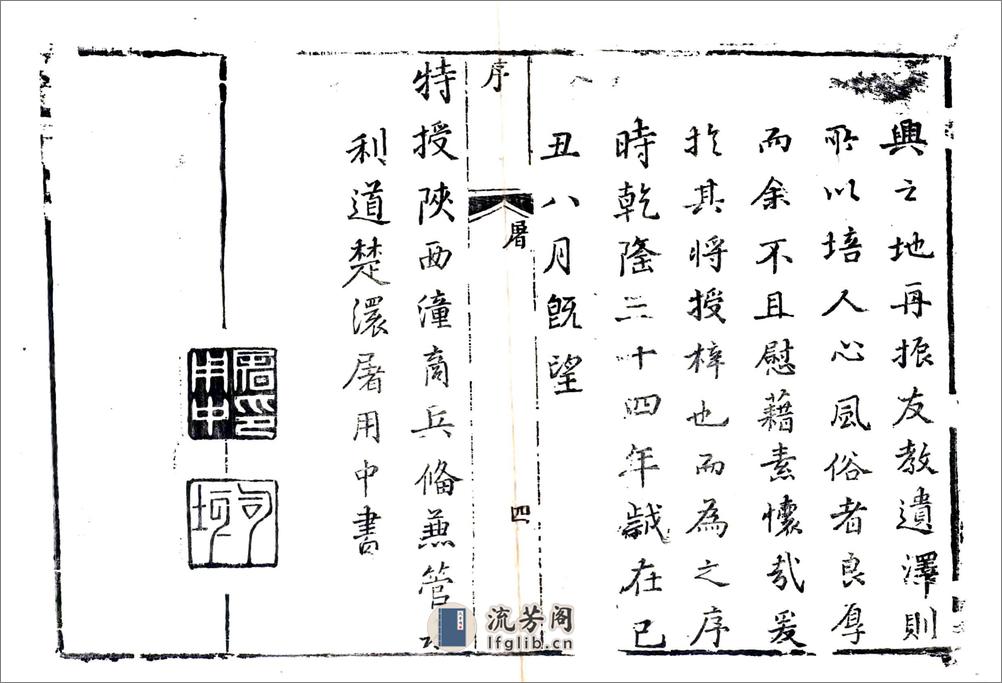 興之地再振友教遺澤則
所以培人心風俗者良厚
而余不且慰藉素懷哉爰
於其將授梓也而為之序
時乾隆三十四年歲在己
丑八月既望
序
屠
四
特授陝西潼商兵備兼管水
利道楚澴屠用中書
屠印用中
流芳阁
lfglib.cn